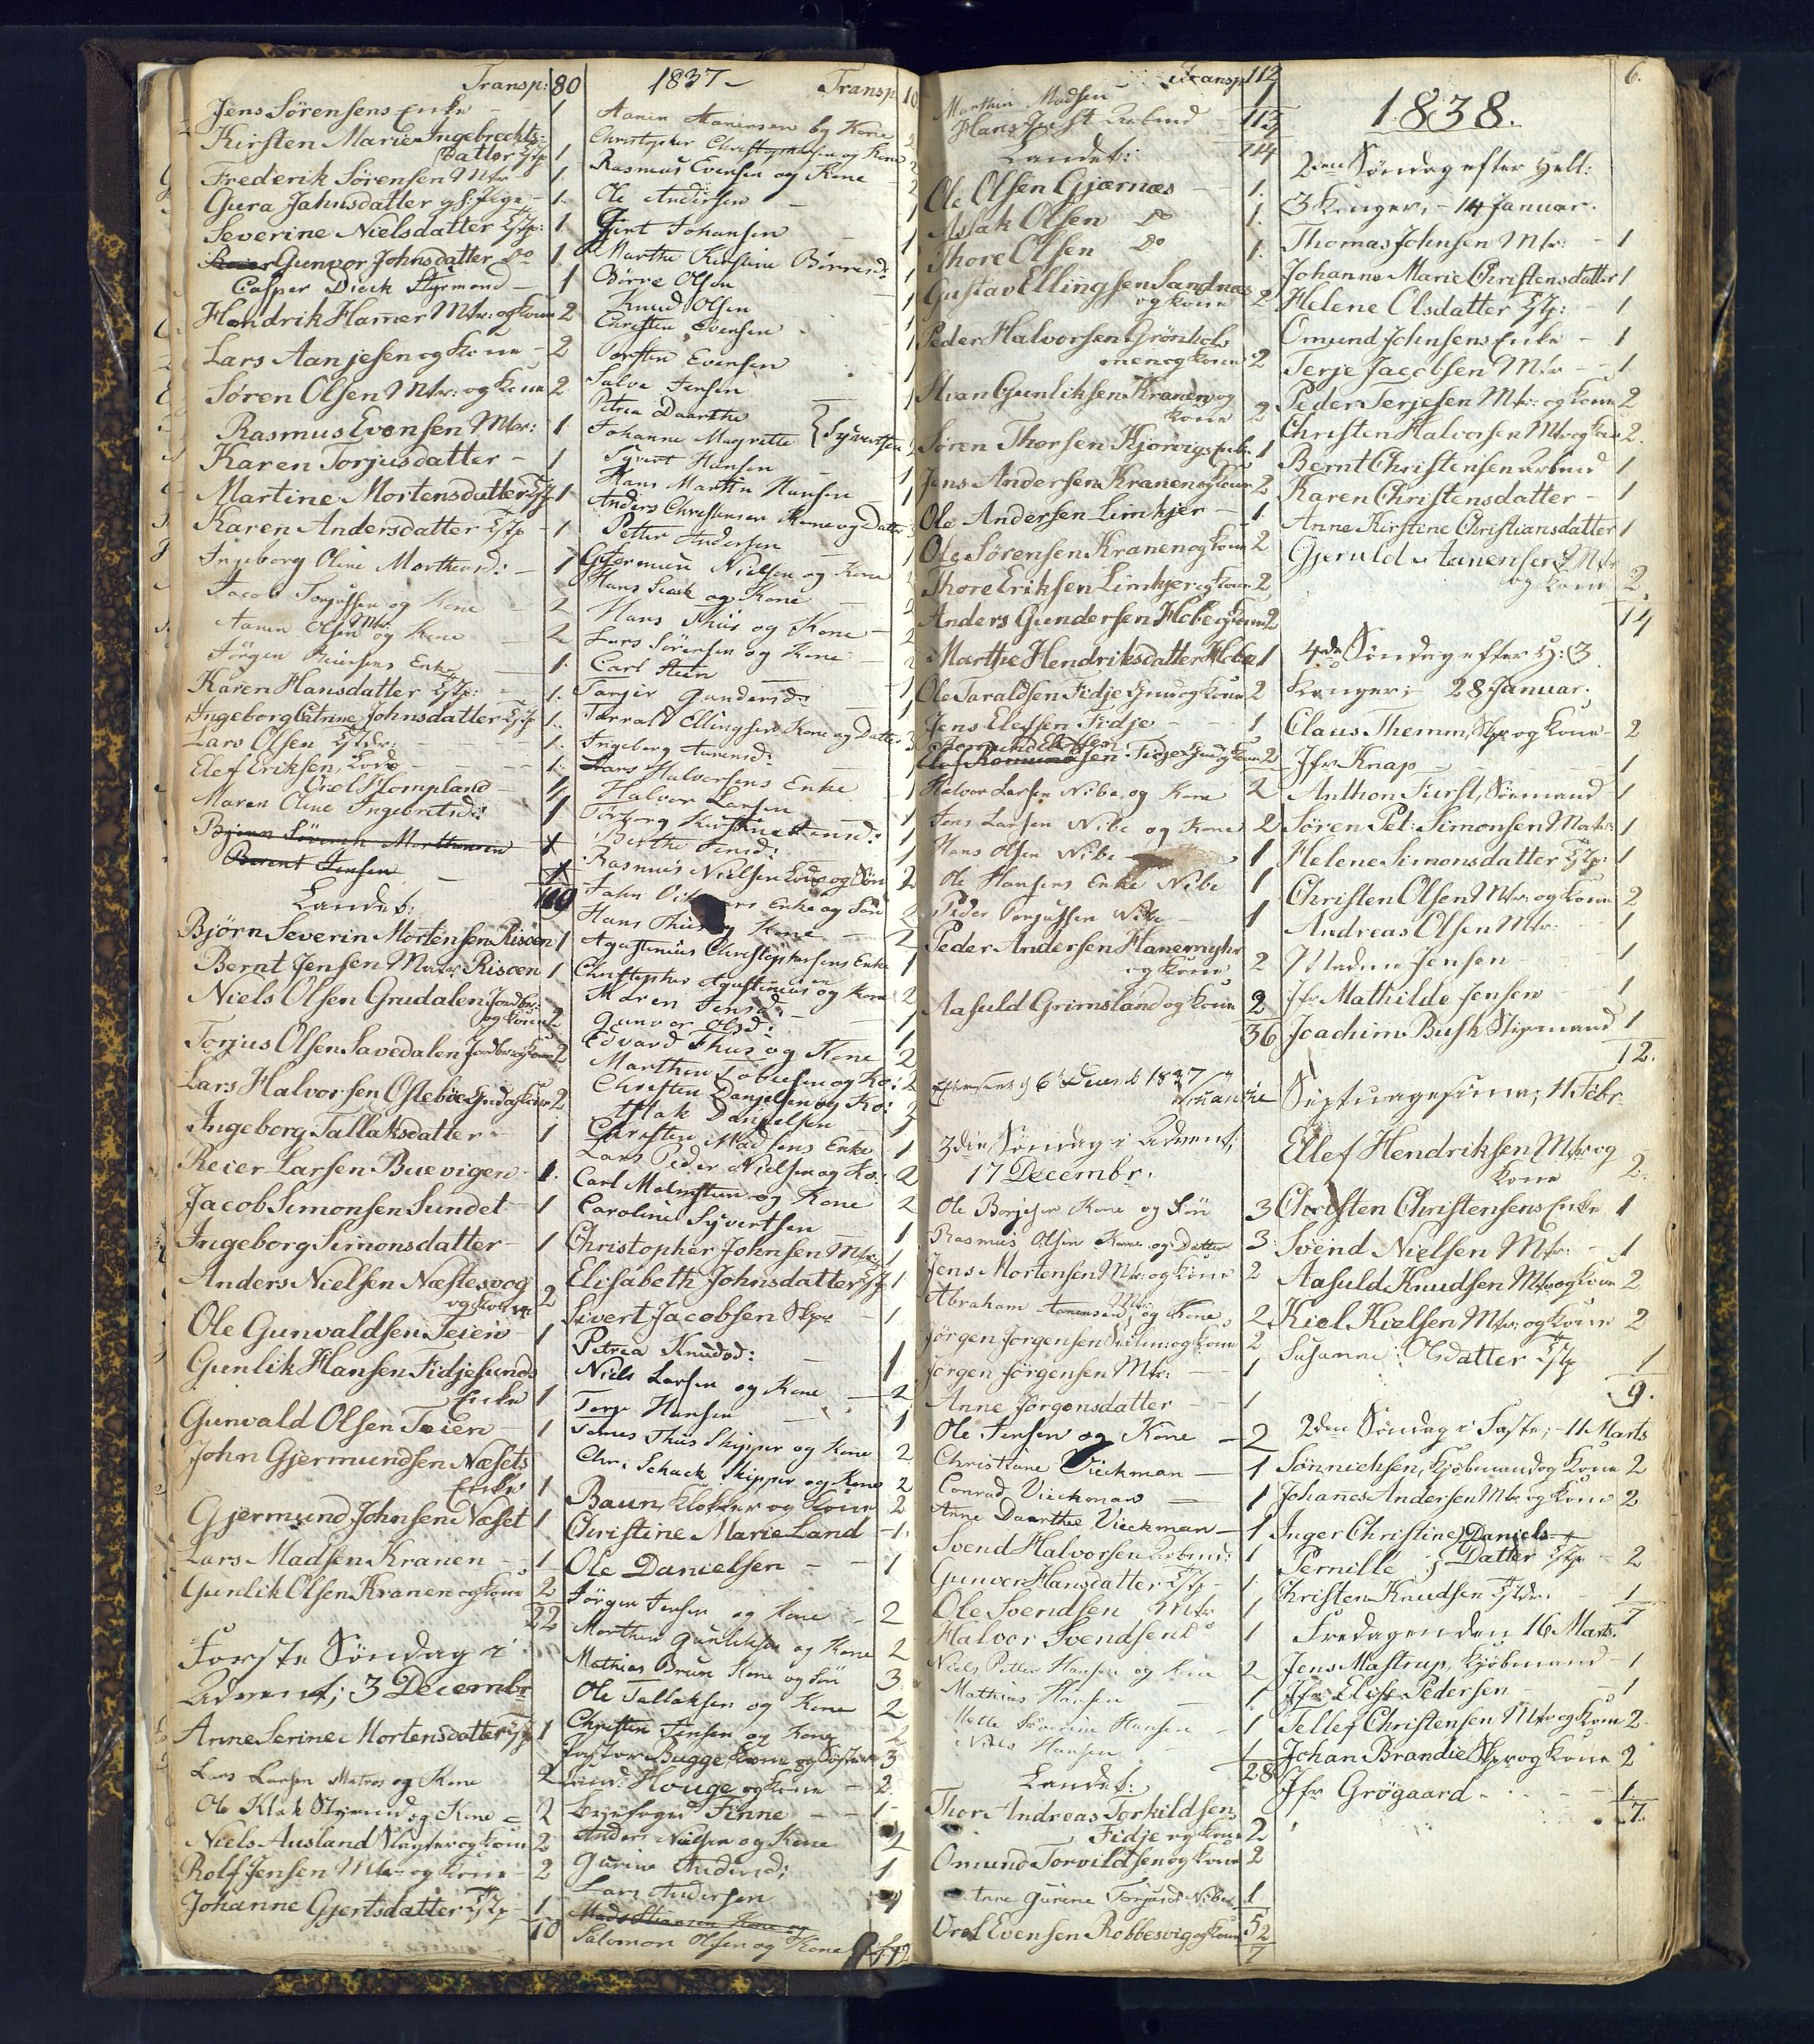 Transp: 80
Jens Sörensens Enke - 1
Kirsten Marie Ingebrechts-
datter 1
Frederik Sörensen Mtr 1.
Gura Jahnsdatter 1.
Severine Nielsdatter 1.
Gunvor Johnsdatter Do 1.
Casper Dieck Styrmand - 1
Hendrik Hamer Mtr: og Kone 2
Lars Aanjesen og Kone - 2
Sören Olsen Mtr: og Kone 2
Rasmus Evensen Mtr: 1.
Karen Torjusdatter - 1
Martine Mortensdatter 1
Karen Andersdatter - 1
Ingeborg Oline Morthensd: - 1
Jacob Torjussen og Kone - 2
Aanen Olsen Mtr og Kone 2
Jörgen Enke 1.
Karen Hansdatter 1.
Ingeborg Catrine Johnsdatter 1.
Lars Olsen 1.
Elef Eriksen, Lods 1.
Oriel Hompland - 1
Maren Oline Ingebretsd: 1
Björn Severin Morthensen 1
Berent Jensen 1
Landet:
Björn Severin Mortensen Risöen 1
Bernt Jensen Matr Risöen 1
Niels Olsen Grudalen Jordbr:
og Kone 2
Torjus Olsen Savedalen Jordbr og Kone 2
Lars Halvorsen Osteböe og Kone 2
Ingeborg Tallaksdatter - 1
Reier Larsen Buevigen - 1.
Jacob Simonsen Sundet - 1
Ingeborg Simonsdatter - 1
Anders Nielsen Næstesvog
og Kone 2
Ole Gunvaldsen Teien - 1
Gunlik Hansen Fidjesunds
Enke 1
Gunvald Olsen Teien 1
John Gjermundsen Næsets
Enke 1
Gjermund Johnsen Næset 1
Lars Madsen Kranen - 1
Gunlik Olsen Kranen og Kone 2
22
Förste Söndag i
Advent; 3 Decembr
Anne Serine Mortensdatter 1
Lars Larsen Matros og Kone 2
Ole Klak Styrmd og Kone - 2
Niels Ausland Slagter og Kone 2
Rolf Jensen Mtr og Kone 2
Johanne Gjertsdatter - 1
10
1837 - Transp
Aanen Aanensen og Kone 2
Christopher Christophersen og Kone 2
Rasmus Evensen og Kone - 2
Ole Andersen - 1
Gunt Johansen - 1
Marthe Kirstine Börresd: 1
Börre Olsen 1
Knud Olsen 1
Christen Evensen 1
Torsten Evensen 1
Salve Jensen 1
Petrea Daarthe
Johanne Magrette } Syvertsen
Syvert Hansen - 1
Hans Martin Hansen - 1
Anders Christensen Kone og Datter 3
Petter Andersen - 1
Gjermun Nielsen og Kone 2
Hans og Kone - 2
Hans Thiis og Kone - 2
Lars Sörensen og Kone - 2
Carl Steen - 1
Torgir Gundersd: 1
Tarrald Ellingsen Kone og Datter 3
Ingeborg Aanensd: 1
Lars Halvorsens Enke 1
Halvor Larsen 1
Torborg Kirstine Aanensd: 1
Berthe Jensd: 1
Rasmus Nielsen Lods og Sön 2
Jahn Enke og Sön 2
Hans Thiis og Kone - 2
Agustinius Christophersens Enke 1
Christopher Agustinius og Kone 2
Maren Jensd: 1
Gunvor Olsd: 1
Edvard Thiis og Kone 2
Marthin Tobiesen og Ko: 2
Christen Danjelsen og Ko: 2
Aslak Danielsen 1
Christen Madsens Enke 1
Lars Peder Nielsen og Ko: 2
Carl Malmsten og Kone 2
Caroline Syvertsen 1
Christopher Johnsen Mtr: 1
Elisabeth Johnsdatter 1
Sivert Jacobsen Skpr 1
Petrea Knudsd: - 1
Niels Larsen og Kone - 2
Terje Hansen - 1
Tönnes Thiis Skipper og Kone 2
Chr: Schack Skipper og Kone 2
Baun, Klokker og Kone 2
Christine Marie Land - 1.
Ole Danielsen - - 1
Jörgen Jensen og Kone - 2
Morthen Gunliksen og Kone 2
Mathias Brun Kone og Sön 3
Ole Tallaksen og Kone 2
Christen Jensen og Kone 2
Pastor Bugge Kone og Söster 3
Cand: Houge og Kone - 2.
Finne - - 1
Anders Nielsen og Kone 2
Gurine Andersd: 1
Lars Andersen 1
Mads Stiansen Kone og
Salomon Olsen og Kone 112
Transp 112
Marthin Madsen - 1
Hans Arbmd - 113
Landet: 114
Ole Olsen Gjærnæs - - 1.
Aslak Olsen Do 1.
Thore Olsen Do 1.
Gustav Ellingsen Sandnæs
og Kone 2
Peder Halvorsen Grönhol-
men og Kone 2
Stian Gunliksen Kranen og
Kone 2
Sören Thorsen Kjorvigs Enke 1
Jens Andersen Kranen og Kone 2
Ole Andersen Limkjer - 1
Ole Sörensen Kranen og Kone 2
Thore Eriksen Limkjer og Kone 2
Anders Gundersen Höbe og Kone 2
Marthe Hendriksdatter Höbe 1
Ole Taraldsen Fidje og Kone 2
Jens Elefsen Fidje - - 1
Elef Romundsen Fidje og Kone 2
Halvor Larsen Nibe og Kone 2
Jens Larsen Nibe og Kone 2
Hans Olsen Nibe 1
Ole Hansens Enke Nibe 1
Peder Torjussen Nibe - 1
Peder Andersen Hanemyhr
og Kone 2
Aasuld Grimsland og Kone 2
36
6 Decemb 1837
3die Söndag i Advent;
17 Decembr.
Ole Börjesen Kone og Sön 3
Rasmus Olsen Kone og Datter 3
Jens Mortensen Mtr og Kone 2
Abraham Aanensen Mtr: og Kone 2
Jörgen Jorgensen og Kone 2
Jörgen Jörgensen Mtr: - 1
Anne Jörgensdatter - - 1
Ole Jensen og Kone - 2
Christiane Vieckman - 1
Conrad Vieckman - 1
Anne Daarthe Vieckman - 1
Svend Halvorsen Arbmd: 1
Gunvor Hansdatter - 1
Ole Svendsen Mtr 1
Halvor Svendsen Do 1
Niels Petter Hansen og Kone 2
Mathias Hansen - 1
Mette Severine Hansen - 1
Niels Hansen - 1
28
Landet:
Thor Andreas Torkildsen
Fidje og Kone 2
Omund Torvildsen og Kone 2
Anne Gurine Torjusd: Nibe 1
5
Orel Evensen Robbesvig og Kone 2
7
6.
1838.
2den Söndag efter Hell:
3 Konger, - 14 Januar.
Thomas Johnsen Mtr: - 1
Johanne Marie Christensdatter 1
Helene Olsdatter - 1
Omund Johnsens Enke - 1
Terje Jacobsen Mtr - - 1
Peder Terjesen Mtr: og Kone 2
Christen Halvorsen Mtr og Kone 2.
Bernt Christensen Arbmd 1
Karen Christensdatter - 1
Anne Kirstine Christiansdatter 1
Gjeruld Aanensen Mtr
og Kone 2.
14
4de Söndag efter H: 3
Konger; - 28 Januar.
Claus Themm, Skpr og Kone - 2
Jfr Knap - - 1
Anthon Furst, Sömand 1
Sören Pet: Simonsen Matr: 1
Helene Simonsdatter 1
Christen Olsen Mtr: og Kone 2
Andreas Olsen Mtr: - 1
Madme Jensen - 1
Jfr Mathilde Jensen - 1
Joachim Busk Stiermand 1
12.
Septuagesima; 11 Febr
Ellef Hendriksen Mtr og
Kone 2.
Christen Christensens Enke 1
Svend Nielsen Mtr: - 1
Aasuld Knudsen Mtr og Kone 2
Kiel Kielsen Mtr: og Kone 2
Susanne Olsdatter 1
9.
2den Söndag i Faste; - 11 Marts
Sönnichsen, Kjöbmand og Kone 2
Johanes Andersen Mtr og Kone 2
Inger Christine } Daniels-
Pernille } Datter - 2
Christen Knudsen - 1
7
Fredagen den 16 Marts.
Jens Mastrup, Kjöbmand - 1
Jfr Elise Pedersen - 1
Tellef Christensen Mtr og Kone 2.
Johan Brandie Skpr og Kone 2
Jfr Grögaard - - 1.
7.